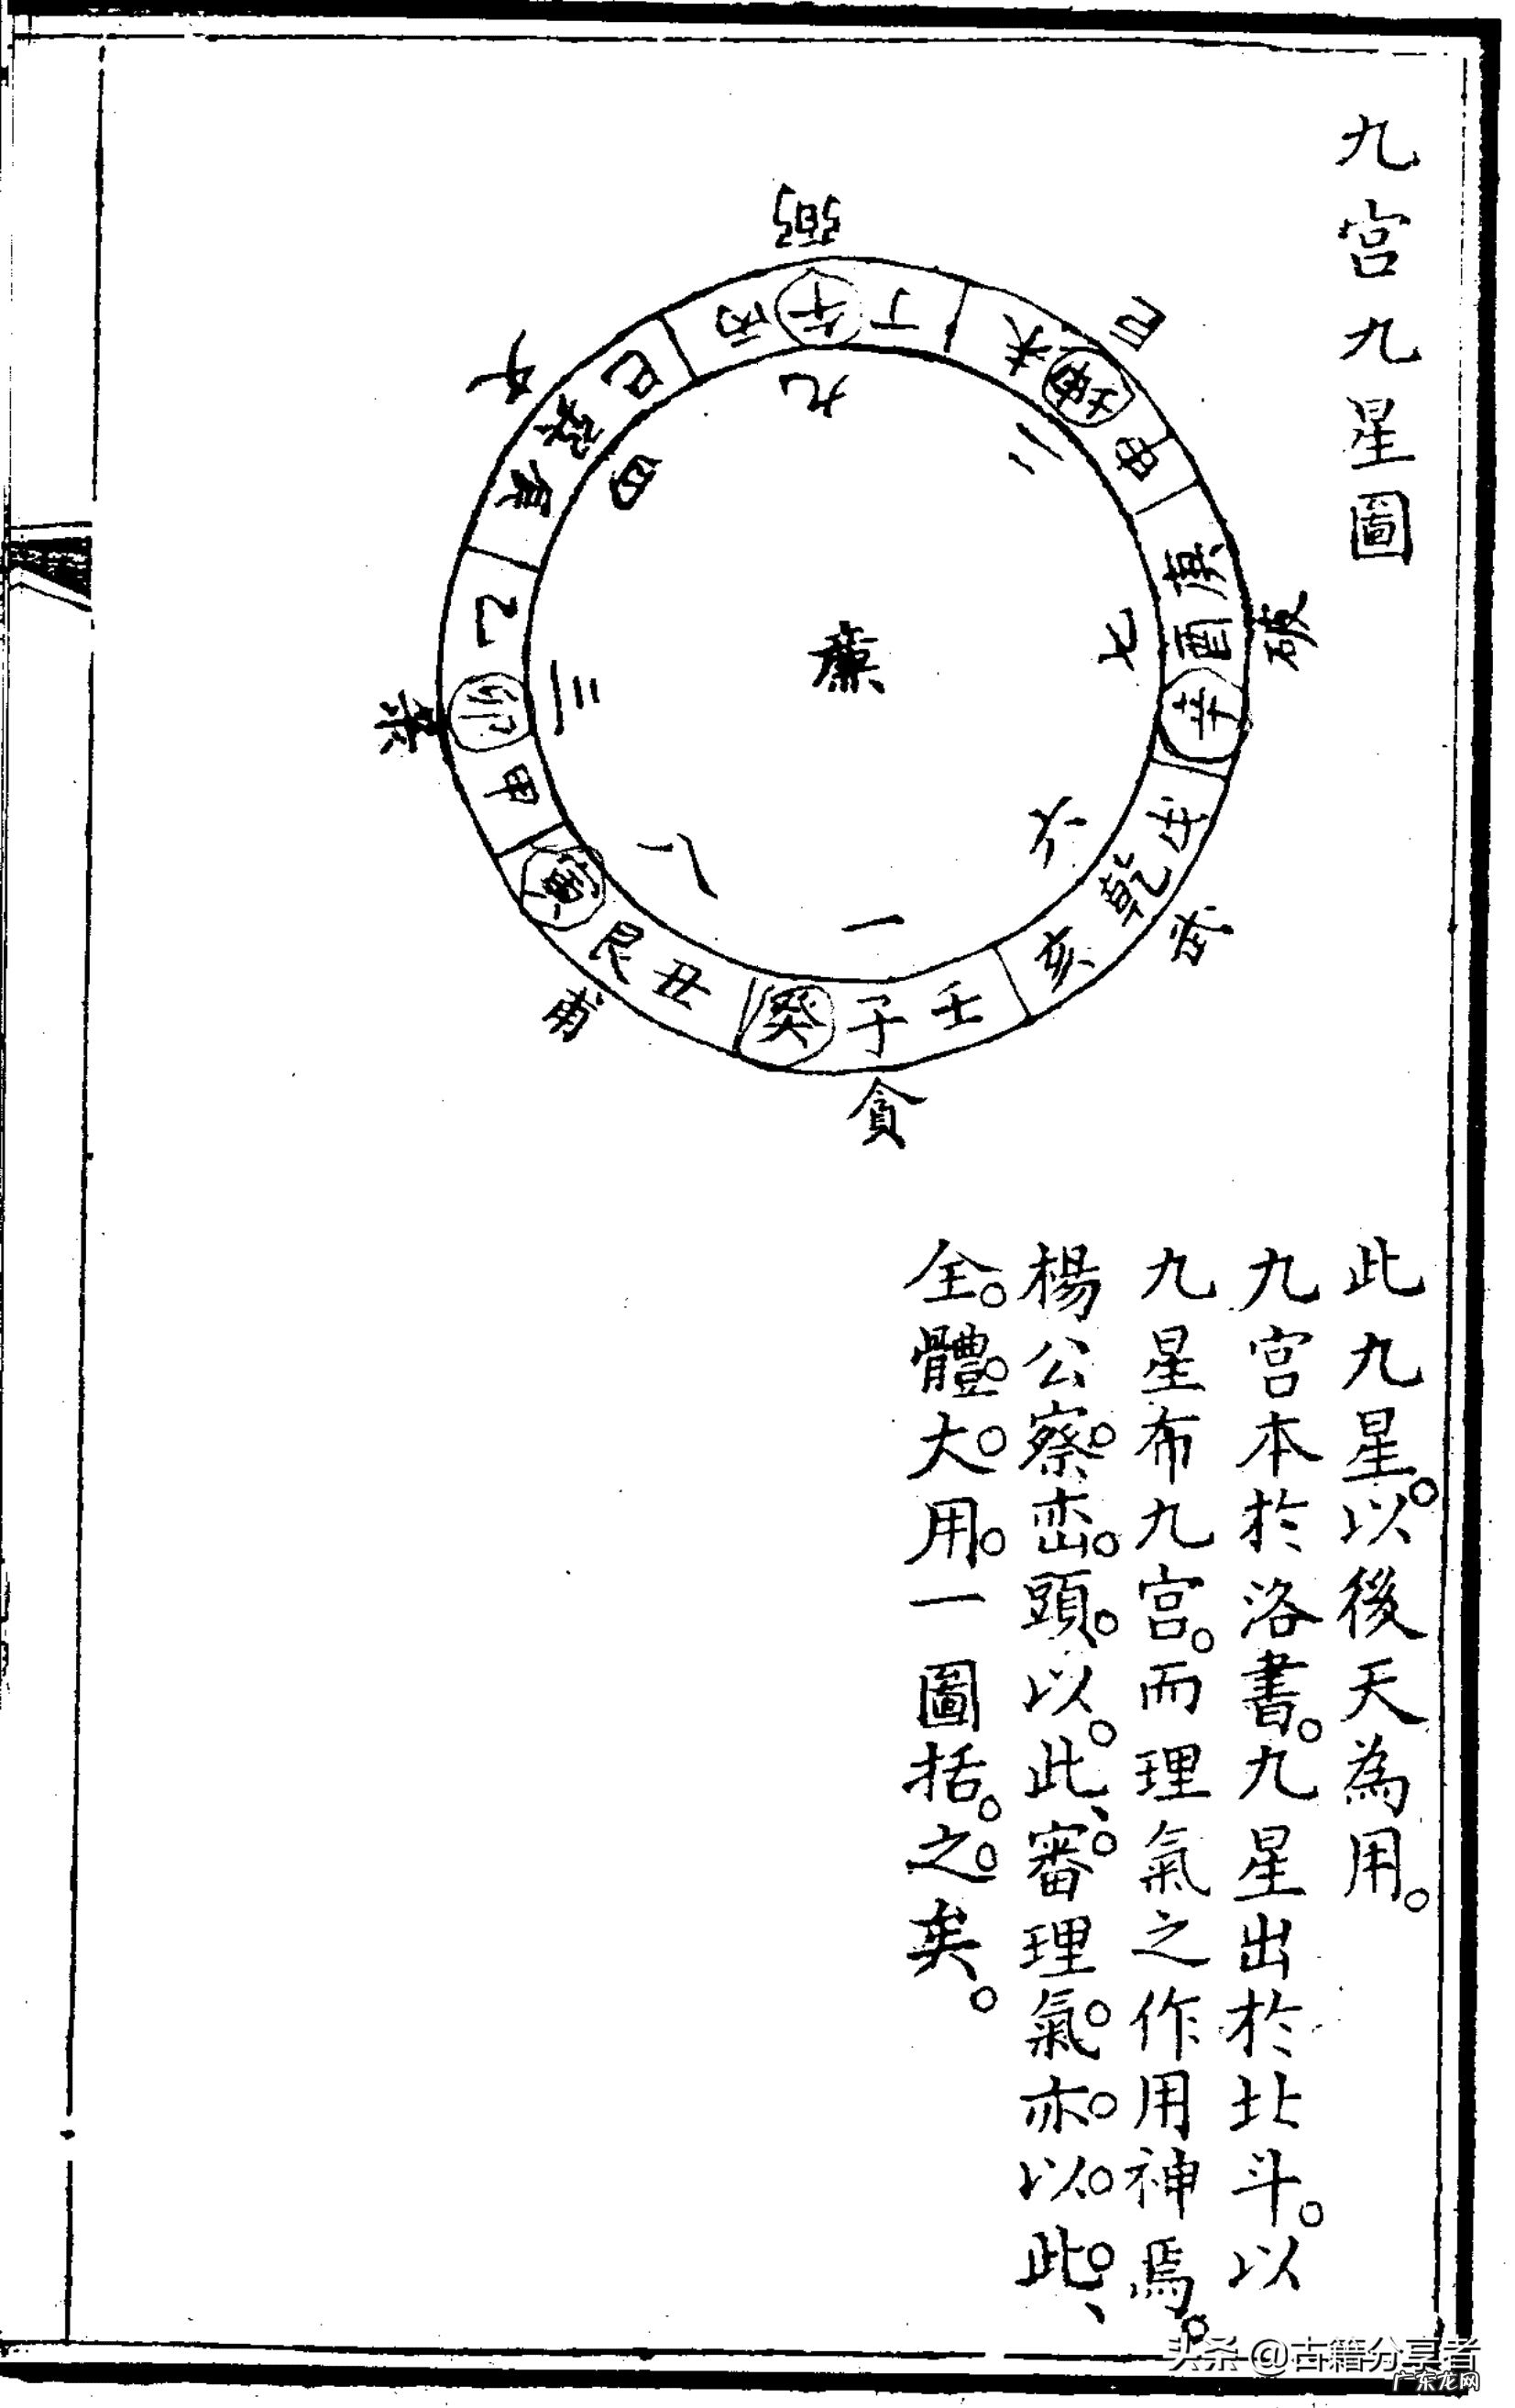 九宮九星圖
弼
巨
破
武
貪
甫
祿
文
丁 午 丙
未 坤 申
庚 酉 辛
乾 亥
壬 子 癸
丑 艮 寅
甲 卯 乙
辰 巽 巳
九
二
七
六
一
八
三
四
廉
此九星。以後天為用。
九宮本於洛書。九星出於北斗。以
九星布九宮。而理氣之作用神焉。
楊公察巒頭以此、審理氣亦以此、
全體大用一圖括之矣。
头条 @古籍分享者
广东龙网